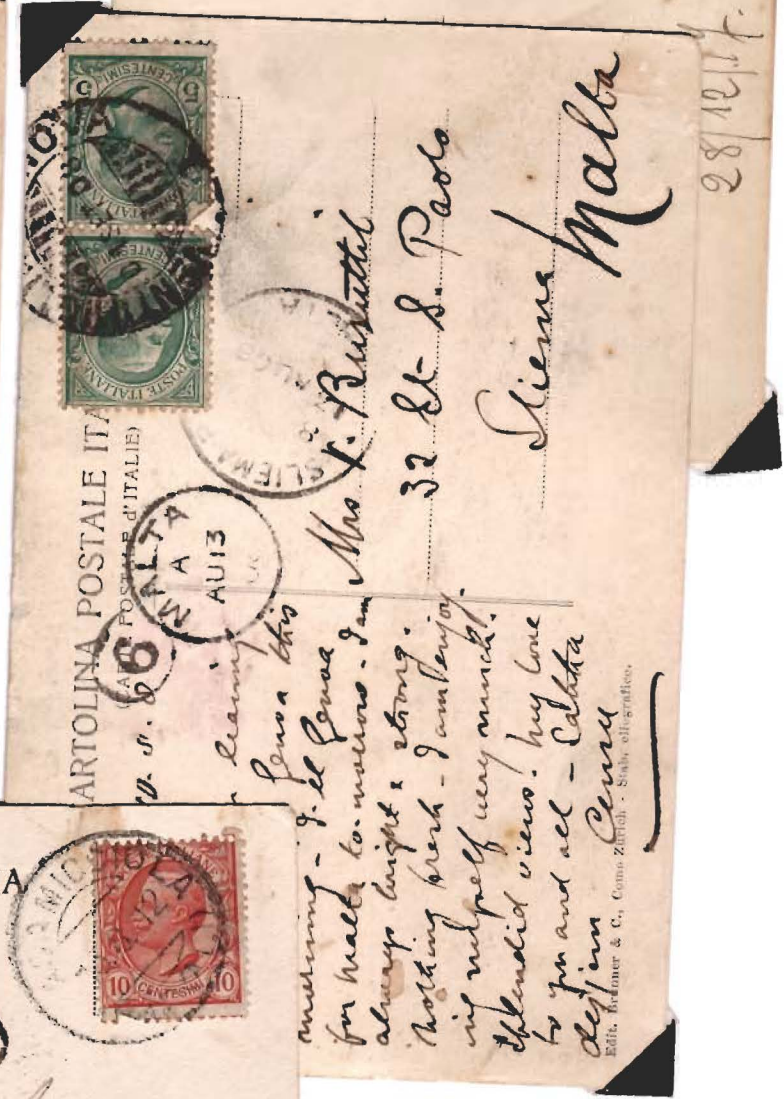 28/12/17.
CARTOLINA POSTALE ITA
(CARTE POSTALE d'ITALIE)
5 CENTESIMI 5
POSTE ITALIANE
CENTESIMI
POSTE ITALIANE
MALTA
A
AU 13
6
SLIEMA
AU 13
8
Mrs V. Busuttil
32 St- S. Paolo
Sliema
Malta
leaving
Genoa this
morning - I. el Genoa
for Malta to-morrow - I am
always bright & strong.
Nothing fresh - I am enjoy-
ing myself very much.
Splendid views. My love
to you and all -
Edit. Brunner & C., Como Zürich - Stab. eliografico.
A
10 CENTESIMI 10